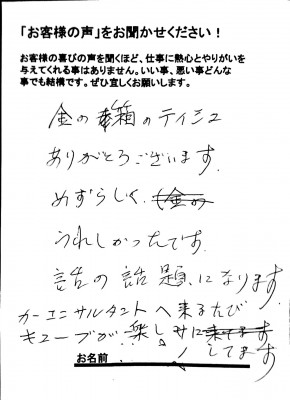 「お客様の声」をお聞かせください！
お客様の喜びの声を聞くほど、仕事に熱心とやりがいを
与えてくれる事はありません。いい事、悪い事どんな
事でも結構です。ぜひ宜しくお願いします。
金の箱のティシュ
ありがとうございます。
めずらしく、
うれしかったです。
話の話題になります。
カーエニサルタントへ来るたび
キューブが楽しみに
してます
お名前